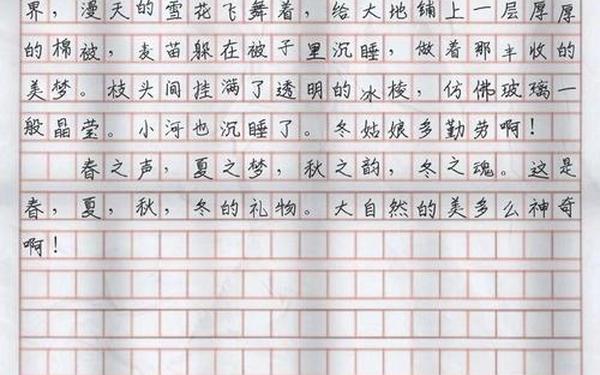 界，漫天的雪花飞舞着，给大地铺上一层厚厚
的棉被，麦苗躲在被子里沉睡，做着那丰收的
美梦。枝头间挂满了透明的冰棱，仿佛玻璃一
般晶莹。小河也沉睡了。冬姑娘多勤劳啊！
春之声，夏之梦，秋之韵，冬之魂。这是
春，夏，秋，冬的礼物。大自然的美多么神奇
啊！